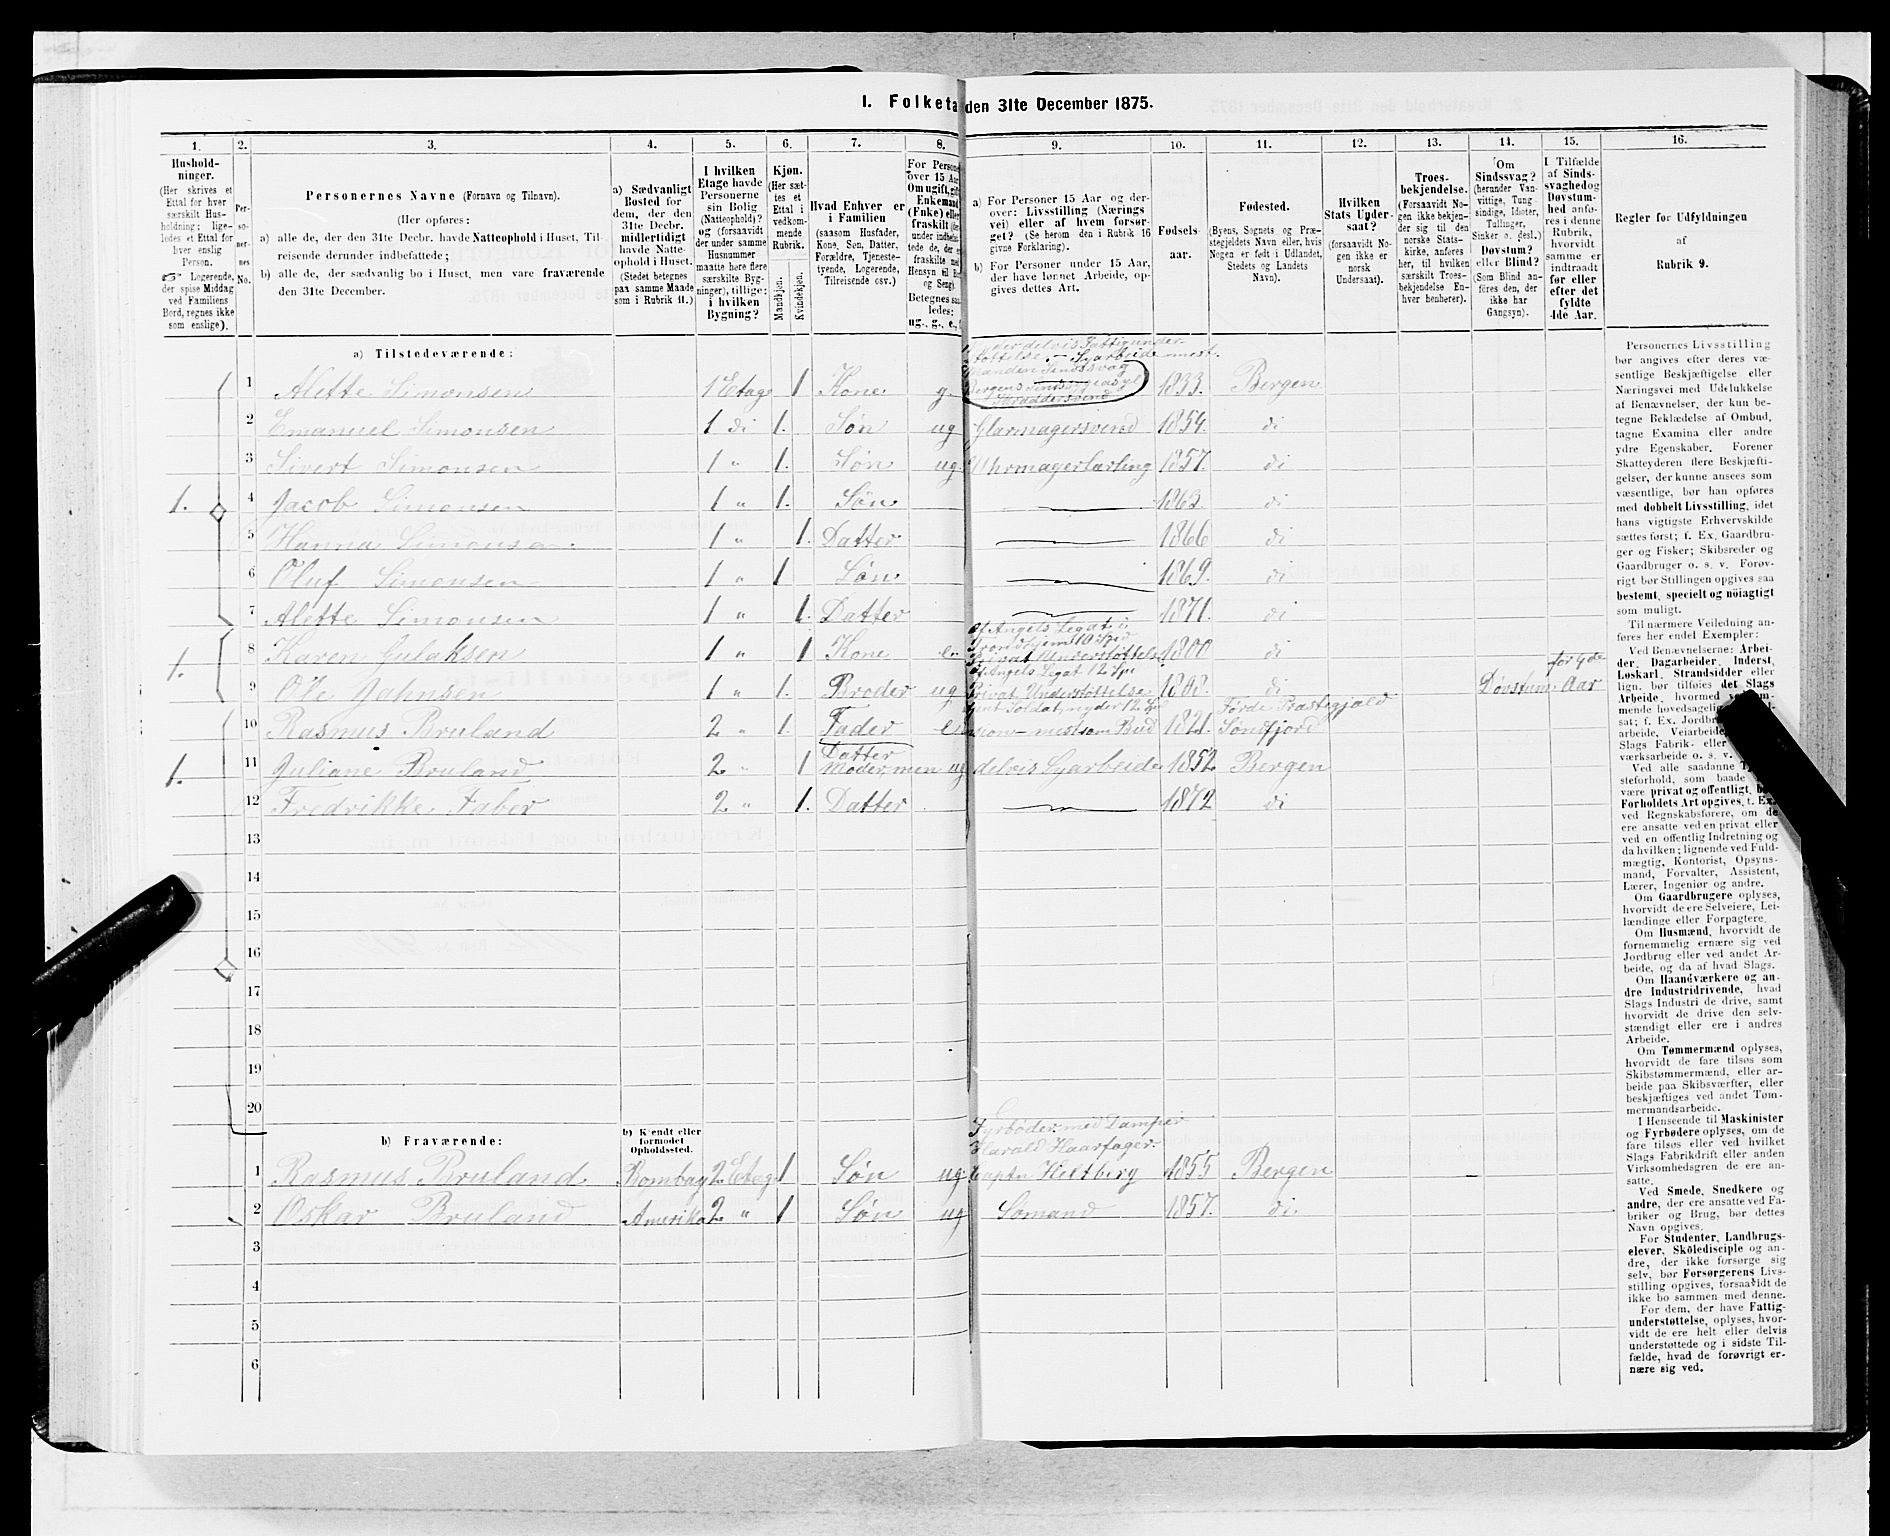 I. Folketæ
den 31te December 1875.
1.
2.
3.
4.
5.
6.
7.
8.
9.
10.
11.
12.
13.
14.
15.
16.
Hushold-
ninger.
(Her skrives et
Ettal for hver
særskilt Hus-
holdning; lige-
ledes et Ettal for
hver enslig
Person.
Logerende,
der spise Middag
ved Familiens
Bord, regnes ikke
som enslige).
Per-
so-
ner-
nes
No.
Personernes Navne (Fornavn og Tilnavn).
(Her opføres:
a) alle de, der den 31te Decbr. havde Natteophold i Huset, Til-
reisende derunder indbefattede;
b) alle de, der sædvanlig bo i Huset, men vare fraværende
den 31te December.
a) Sædvanligt
Bosted for
dem, der den
31te Decbr.
midlertidigt
havde Natte-
ophold i Huset.
(Stedet betegnes
paa samme Maade
som i Rubrik 11.)
I hvilken
Etage havde
Personerne
sin Bolig
(Natteophold)?
og (forsaavidt
der under samme
Husnummer
maatte høre flere
særskilte Byg-
ninger), tillige:
i hvilken
Bygning?
Kjøn.
(Her sæt-
tes et
Ettal i
vedkom-
mende
Rubrik.
Mandkjøn.
Kvindekjøn.
Hvad Enhver er
i Familien
(saasom Husfader,
Kone, Søn, Datter,
Forældre, Tjeneste-
tyende, Logerende,
Tilreisende osv.)
For Persone
over 15 Aar
Om ugift, gift
Enkemand
(Enke) elle
fraskilt
under indbefat-
tede de, der e
fraskilte me
Hensyn til Bo
og Seng).
Betegnes saa
ledes:
ug., g., e.,
a) For Personer 15 Aar og der-
over: Livsstilling (Nærings
vei) eller af hvem forsør-
get? (Se herom den i Rubrik 16
givne Forklaring).
b) For Personer under 15 Aar,
der have lønnet Arbeide, op-
gives dettes Art.
Fødsels-
aar.
Fødested.
(Byens, Sognets og Præ-
stegjeldets Navn eller, hvis
Nogen er født i Udlandet,
Stedets og Landets
Navn).
Hvilken
Stats Under-
saat?
(forsaavidt No-
gen ikke er
norsk
Undersaat).
Troes-
bekjendelse.
(Forsaavidt No-
gen ikke bekjen-
der sig til den
norske Stats-
kirke, anføres
her, til hvilken
særskilt Troes-
bekjendelse En-
hver henhører).
Om
Sindssvag?
(herunder Van-
vittige, Tung-
sindige, Idioter,
Tullinger,
Sinker o. desl.)
Døvstum?
eller Blind?
(Som Blind an-
føres den, der
ikke har
Gangsyn).
I Tilfælde
af Sinds-
svaghed og
Døvstum-
hed anfø-
res i denne
Rubrik,
hvorvidt
samme er
indtraadt
før eller
efter det
fyldte
4de Aar.
Regler for Udfyldningen
af
Rubrik 9.
a) Tilstedeværende:
delvis Fattigunder-
støttelse - Syarbeide mest.
Manden Sindssvag
Bergens Sindssygeasyl
Skræddersvend
1 Alette Simonsen 1 Etage 1 Kone g. 1833. Bergen
2 Emanuel Simonsen 1 di 1. Søn ug Glarmagersvend 1854. di
3 Sivert Simonsen 1 " 1. Søn ug. Uhrmagerlærling 1857. di
1. 4 Jacob Simonsen 1 " 1. Søn 1863. di
5 Hanna Simonsen. 1 " 1. Datter 1866 di
6 Oluf Simonsen 1 " 1 Søn 1869. di
7 Alette Simonsen 1 " 1. Datter 1871. di
af Angels Legat i
Trondhjem 10 Spd
1. 8 Karen Gulaksen 1 " 1 Kone e. Privat Understøttelse 1800 di
af Angels Legat 12 Spd
for 4de
9 Ole Jahnsen 1 " 1. Broder ug Privat Understøttelse 1808. di Døvstum. Aar
Soldat, nyder 12 Spd Førde Præstegjæld
10 Rasmus Bruland 2 " 1. Fader e mest som Bud 1821. Søndfjord
Datter
1. 11 Juliane Bruland 2 " 1 Moder, men ug delvis Syarbeide 1852 Bergen
12 Fredrikke Faber 2 " 1. Datter 1872 di
13
14
15
16
17
18
19
20
b) Fraværende:
b) Kjendt eller
formodet
Opholdssted.
Fyrbøder med Dampsk
Harald Haarfager.
1 Rasmus Bruland Bombay 2 Etage 1 Søn ug Captn Heltberg 1855 Bergen
2 Oskar Bruland Amerika 2 " 1 Søn ug Sømand 1857. di
3
4
5
6
Personernes Livsstilling
bør angives efter deres væ-
sentlige Beskjæftigelse eller
Næringsvei med Udelukkelse
af Benævnelser, der kun be-
tegne Beklædelse af Ombud,
tagne Examina eller andre
ydre Egenskaber. Forener
Skatteyderen flere Beskjæfti-
gelser, der kunne ansees som
væsentlige, bør han opføres
med dobbelt Livsstilling, idet
hans vigtigste Erhvervskilde
sættes først; f. Ex. Gaardbru-
ger og Fisker; Skibsreder og
Gaardbruger o. s. v. Forøv-
rigt bør Stillingen opgives saa
bestemt, specielt og nöiagtigt
som muligt.
Til nærmere Veiledning an-
føres her endel Exempler:
Ved Benævnelserne: Arbei-
der, Dagarbeider, Inderst,
Løskarl, Strandsidder eller
lign. bør tilføies det Slags
Arbeide, hvormed
mende hovedsagelig
sat; f. Ex. Jordbr
arbeide, Veiarbeide
Slags Fabrik- eller
værksarbeide o. s. v.
Ved alle saadanne
steforhold, som baade
være privat og offentligt,
Forholdets Art opgives, t. Ex.
ved Regnskabsførere, om de
ere ansatte ved en privat eller
ved en offentlig Indretning og
da hvilken; lignende ved Fuld-
mægtig, Kontorist, Opsyns-
mand, Forvalter, Assistent,
Lærer, Ingeniør og andre.
Om Gaardbrugere oplyses,
hvorvidt de ere Selveiere, Lei-
lændinge eller Forpagtere.
Om Husmænd, hvorvidt de
fornemmelig ernære sig ved
Jordbrug eller ved andet Ar-
beide, og da af hvad Slags.
Om Haandværkere og an-
dre Industridrivende, hvad
Slags Industri de drive, samt
hvorvidt de drive den selv-
stændigt eller ere i andres
Arbeide.
Om Tømmermænd oplyses,
hvorvidt de fare tilsøs som
Skibstømmermænd, eller ar-
beide paa Skibsværfter, eller
beskjæftiges ved andet Tøm-
mermandsarbeide.
I Henseende til Maskinister
og Fyrbødere oplyses, om de
fare tilsøs eller ved hvilket
Slags Fabrikdrift eller anden
Virksomhedsgren de ere an-
satte.
Ved Smede, Snedkere og
andre, der ere ansatte ved Fa-
briker og Brug, bør dettes
Navn opgives.
For Studenter, Landbrugs-
elever, Skoledisciple og an-
dre, der ikke forsørge sig
selv, bør Forsørgerens Livs-
stilling opgives, forsaavidt de
ikke bo sammen med denne.
For dem, der have Fattig-
understøttelse, oplyses, hvor-
vidt de ere helt eller delvis
understøttede og i sidste Til-
fælde, hvad de forøvrigt er-
nære sig ved.